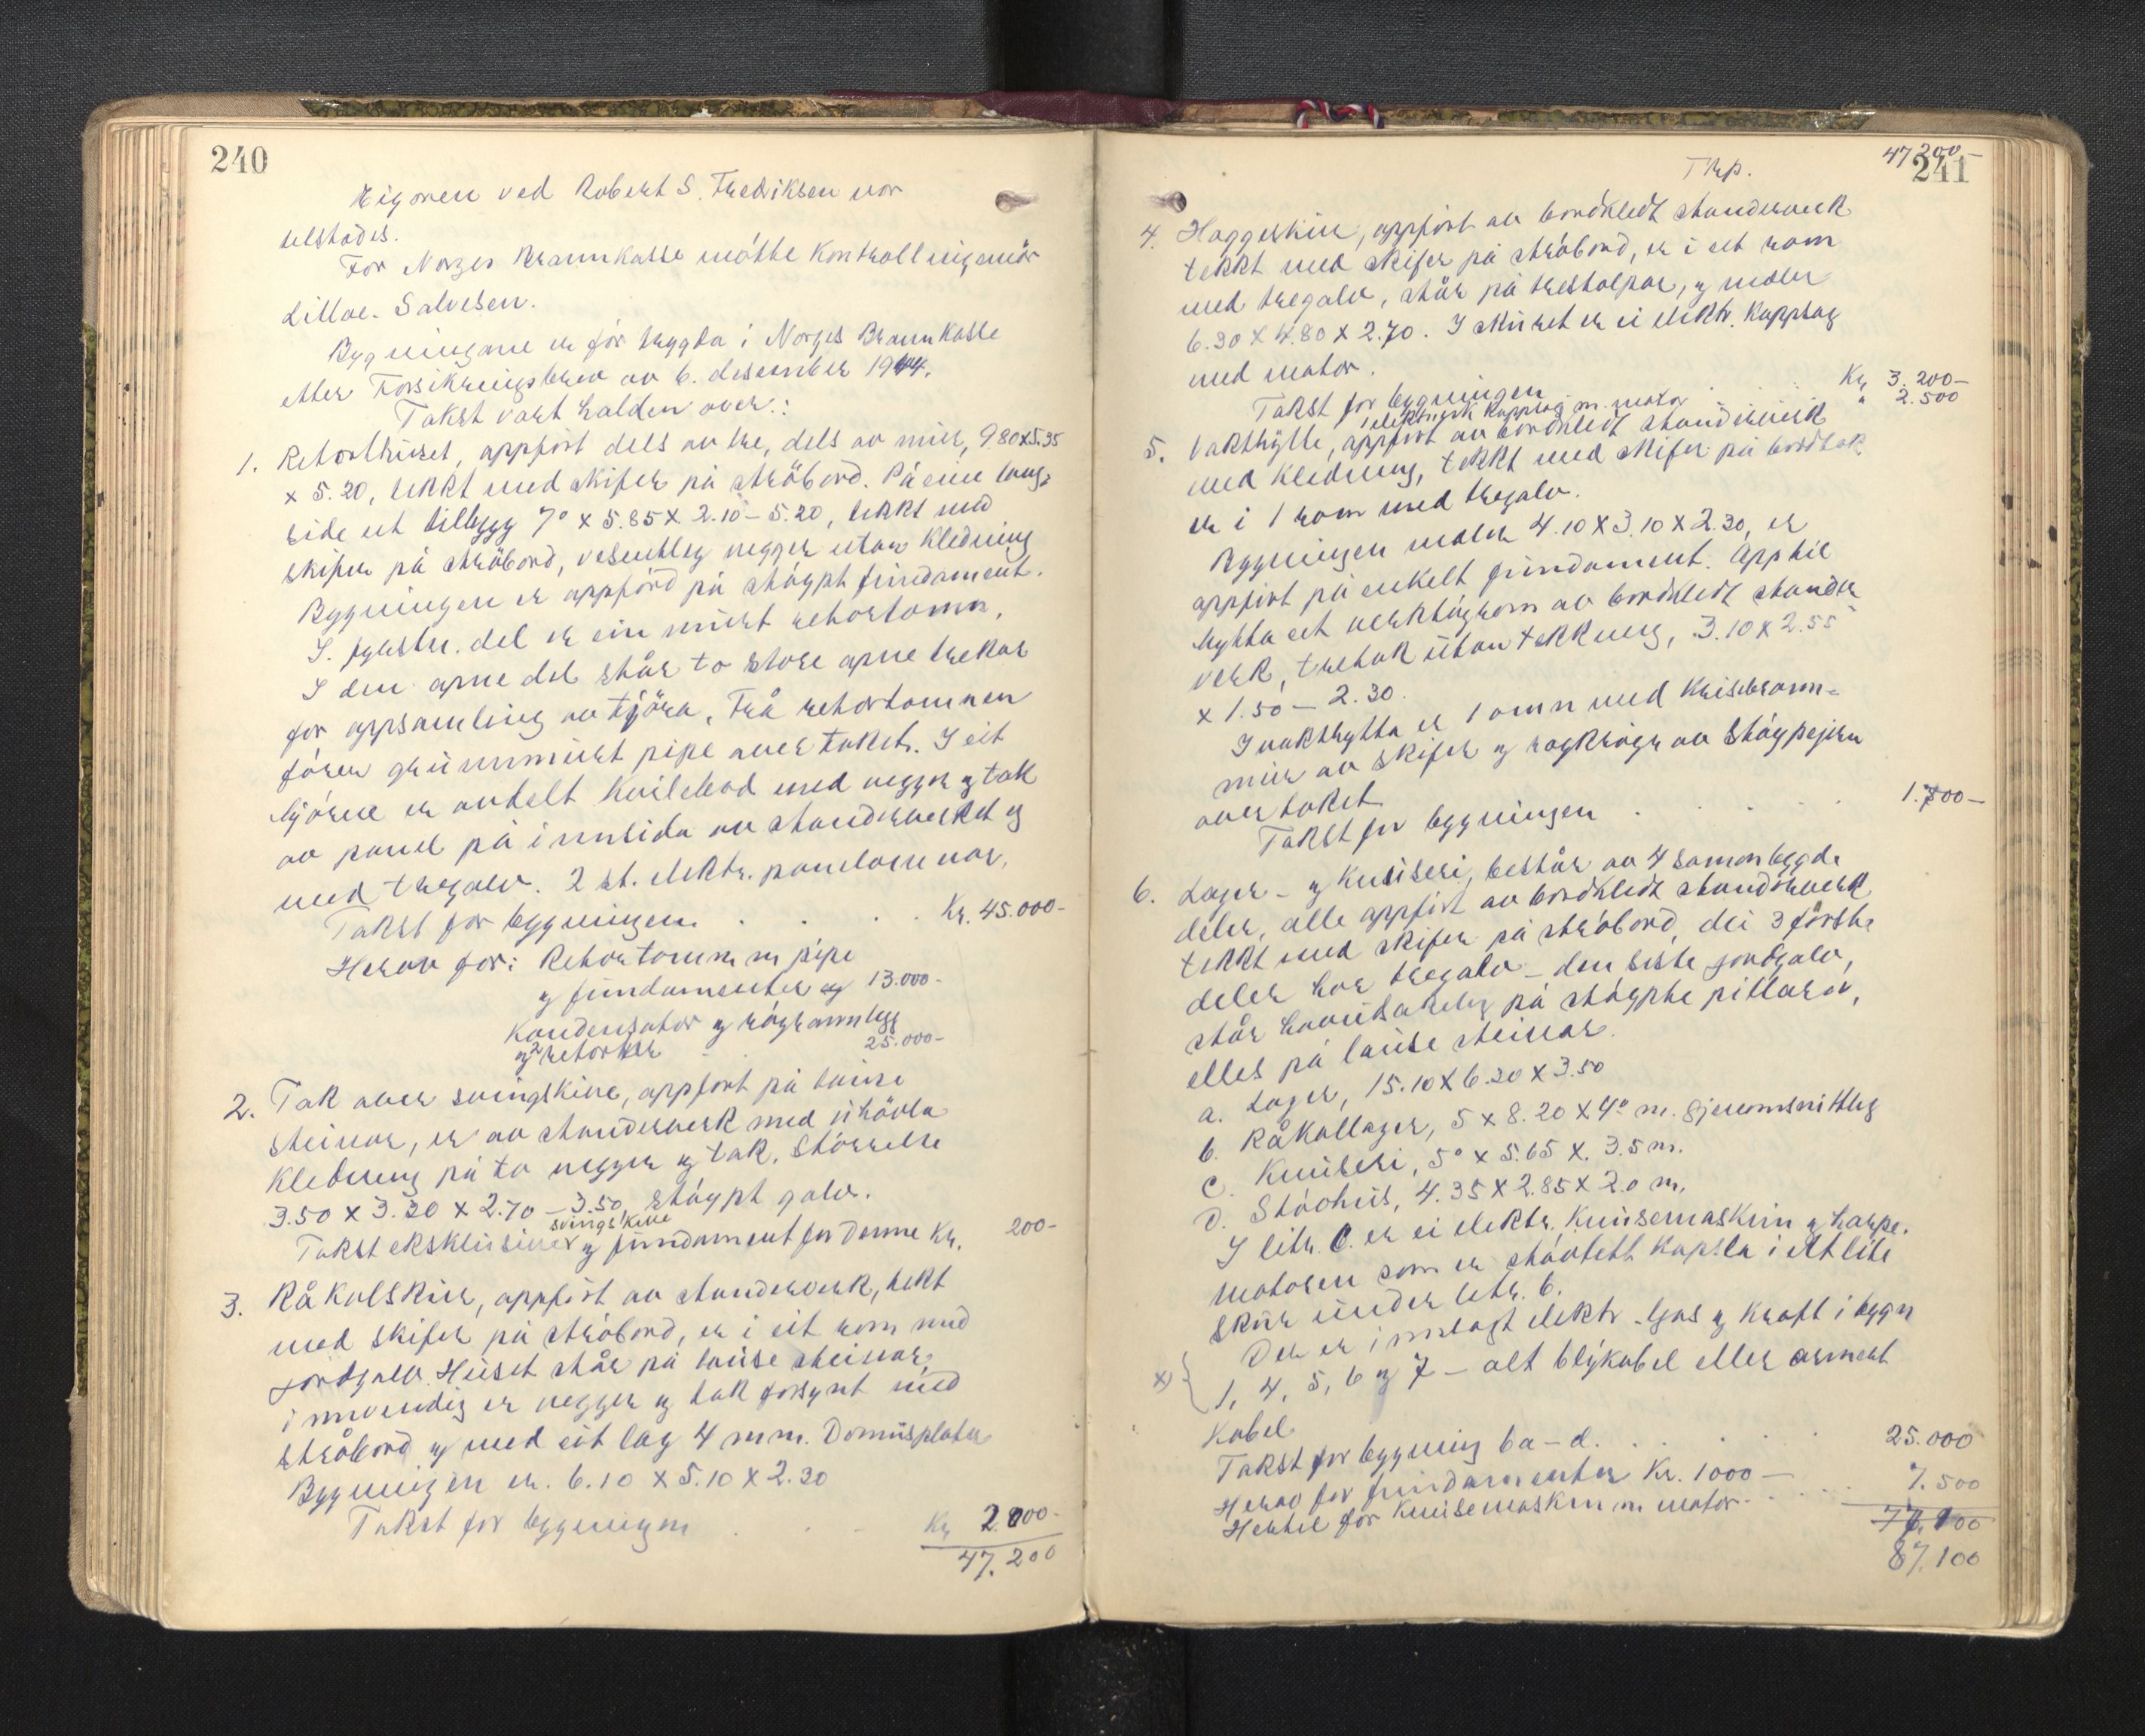 240
Eigaren ved Robert S. Fredriksen var
tilstades.
For Norges Brannkasse møtte Kontrollingeniør
Lilloe-Salvesen.
Bygningane er før trygda i Norges Brannkasse
etter Forsikringsbrev av 6. desember 1944.
Takst vart halden over:
1. Retorthuset, oppført dels av tre, dels av mur, 9.80x5.35
x 5.20, tekkt med skifer på strøbord. På eine lang-
side eit tillegg 7° x 5.85 x 2.10 - 5.20, tekkt med
skifer på strøbord, vesentleg vegger utan kledning
Bygningen er oppførd på støypt fundament.
I fyrste del er ein murt retortomn,
I den apne del står to store apne trekar
for oppsamling av tjöra, Frå retortomnen
fører grunnmurt pipe over taket. I eit
hjörne er avdelt kvilebod med vegger og tak
av panel på innsida av standerverket og
med tregolv. 2 st. elektr. panelomnar.
Takst for bygningen . . . . Kr. 45.000-
Herav for: Retortomn m pipe
og fundamenter og 13.000-
Kondensator og røykannlegg
og 2 retorter 25.000-
2. Tak over svingskive, oppført på lause
steinar, er av standerverk med uhövla
kledning på to vegger og tak. Störrelse
3.50 x 3.30 x 2.70 - 3.50, støypt golv.
svingskive
Takst eksklusiver og fundament for denne Kr. 200-
3. Råkolskur, oppført av standerverk, tekt
med skifer på strøbord, er i eit rom med
jordgolv. Huset står på lause steinar,
innvendig er vegger og tak forsynt med
strøbord og med eit lag 4 mm. Domusplater
Bygningen er. 6.10 x 5.10 x 2.30
Takst for bygningen . . . Kr 2000-
47.200
47 200-
241
Trp.
4. Hoggerskur, oppført av bordkledt standerverk
tekkt med skifer på strøbord, er i eit rom
med tregolv, står på trestolpar, og måler
6.30 x 4.80 x 2.70. I skuret er ei elektr. kappsag
med motor.
Takst for bygningen Kr 3.200-
1 elektrisk kappsag m. motor " 2.500
5. Vakthytte, oppført av bordkledt standerverk
med kledning, tekkt med skifer på bordtak
er i 1 rom med tregolv.
Bygningen måler 4.10 x 3.10 x 2.30, er
oppført på enkelt fundament. Opp til
hytta eit verktøyrom av bordkledt stander
verk, tretak utan tekkning, 3.10 x 2.55
x 1.50 - 2.30.
I vakthytta er 1 omn med
mur av skifer og røykrøyr av støypejern
over taket
Takst for bygningen . . . . 1.700-
6. Lager- og knuseri, består av 4 samanbygde
deler, alle oppført av bordkledt standerverk
tekkt med skifer på strøbord, dei 3 første
deler har tregolv - den siste jordgolv,
står hovudsakeleg på støypte pillarar,
elles på lause steinar.
a. Lager, 15.10 x 6.20 x 3.50
b. Råkollager, 5 x 8.20 x 4° m. gjennomsnittleg
c. Knuseri, 5° x 5.65 x 3.5 m.
d. Stövhus, 4.35 x 2.85 x 2.0 m.
I litr. C. er ei elektr. knusemaskin og harpe.
motoren som er støvtett kapsla i eit lite
skur under litr. b.
Der er innlagt elektr. ljos og kraft i bygn
x) 1, 4, 5, 6 og 7 - alt blykabel eller arment
Kabel
Takst for bygning 6a-d. . . . . 25.000
Herav for fundamenter Kr. 1000-
Hertil for knusemaskin m. motor . . . . 7.500
87.100